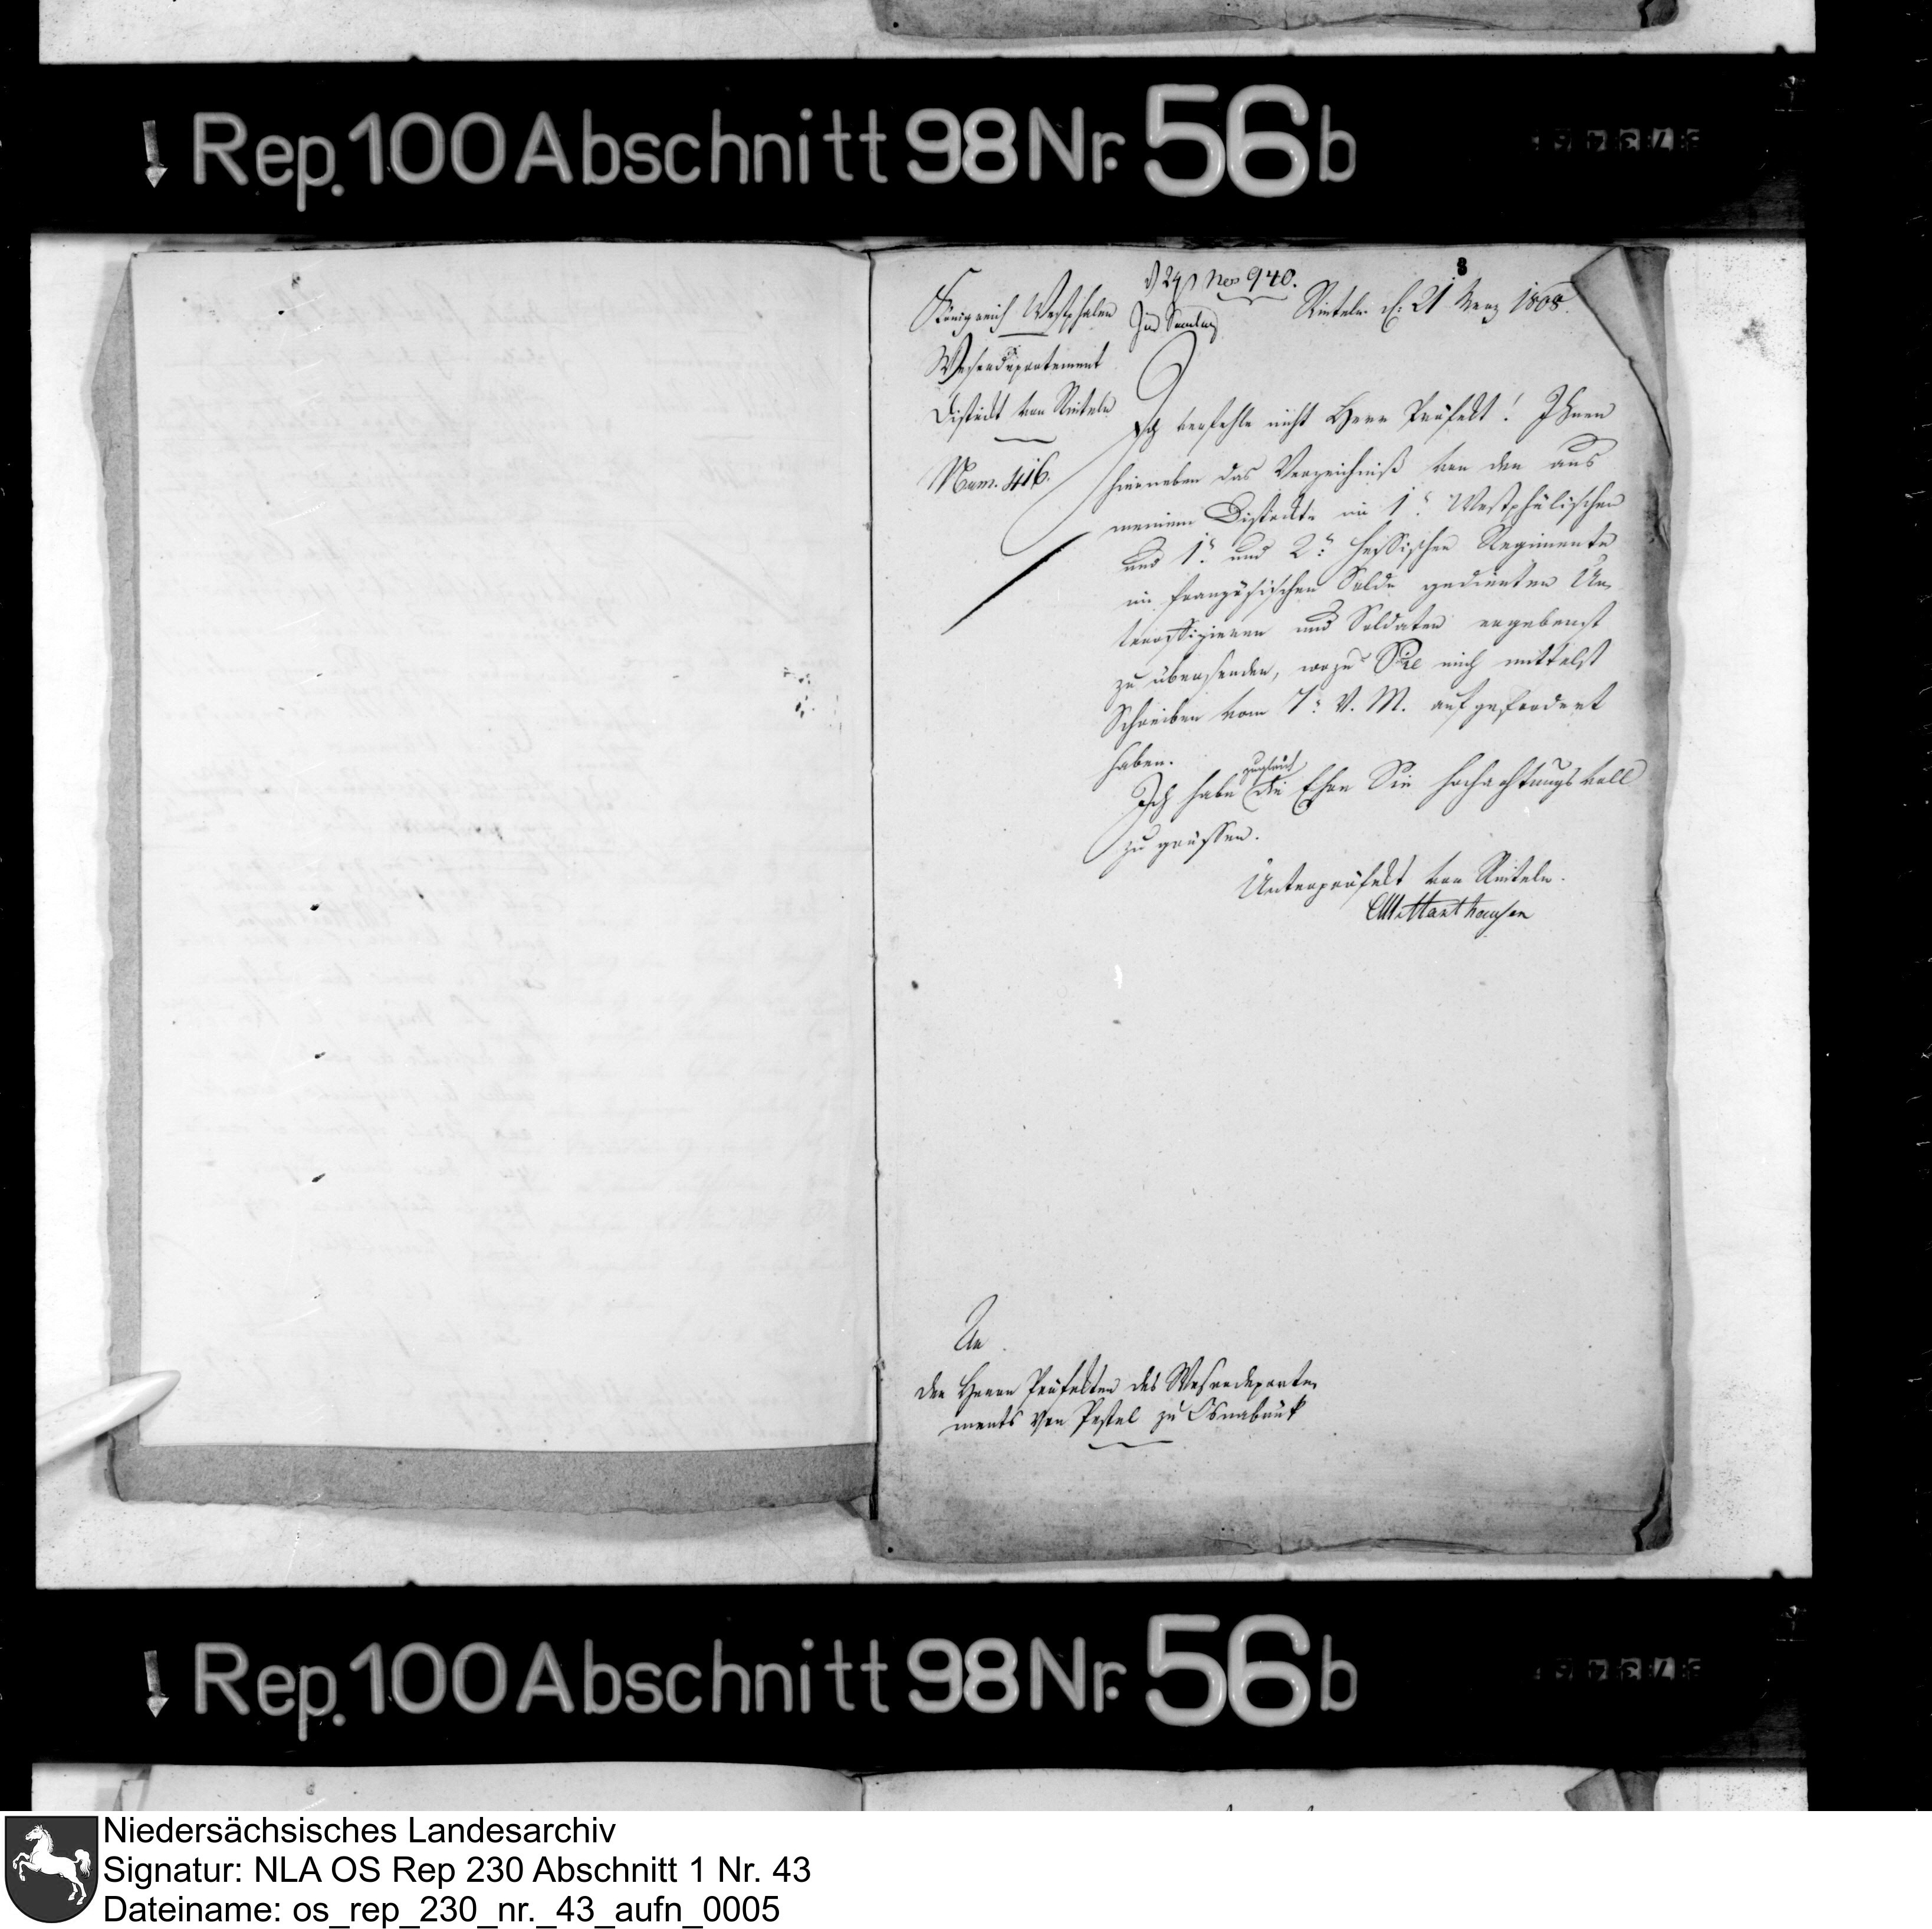 Rep. 100 Abschnitt 98 Nr. 56b
8
No 940.
Königreich Westphalen
Rinteln d. 21 Merz 1808.
Weserdepartement
District von Rinteln
Num. 416.
Ich verfehle nicht Herr Präfekt! Ihnen
hierneben das Verzeichniß von den aus
meinem Districkte im 1n. Westphälischen
und 1n. und 2n. hessischen Regimente
im französischen Solde gedienten Un-
teroffizieren und Soldaten ergebenst
zu übersenden, wozu Sie mich mittelst
Schreiben vom 7n. V. M. aufgefordert
haben.
zugleich
Ich habe die Ehre Sie hochachtungsvoll
zu grüssen.
Unterpräfekt von Rinteln.
An
den Herrn Präfekten des Weserdeparte-
ments von Pestel zu Osnabrük
Rep. 100 Abschnitt 98 Nr. 56b
Niedersächsisches Landesarchiv
Signatur: NLA OS Rep 230 Abschnitt 1 Nr. 43
Dateiname: os_rep_230_nr._43_aufn_0005